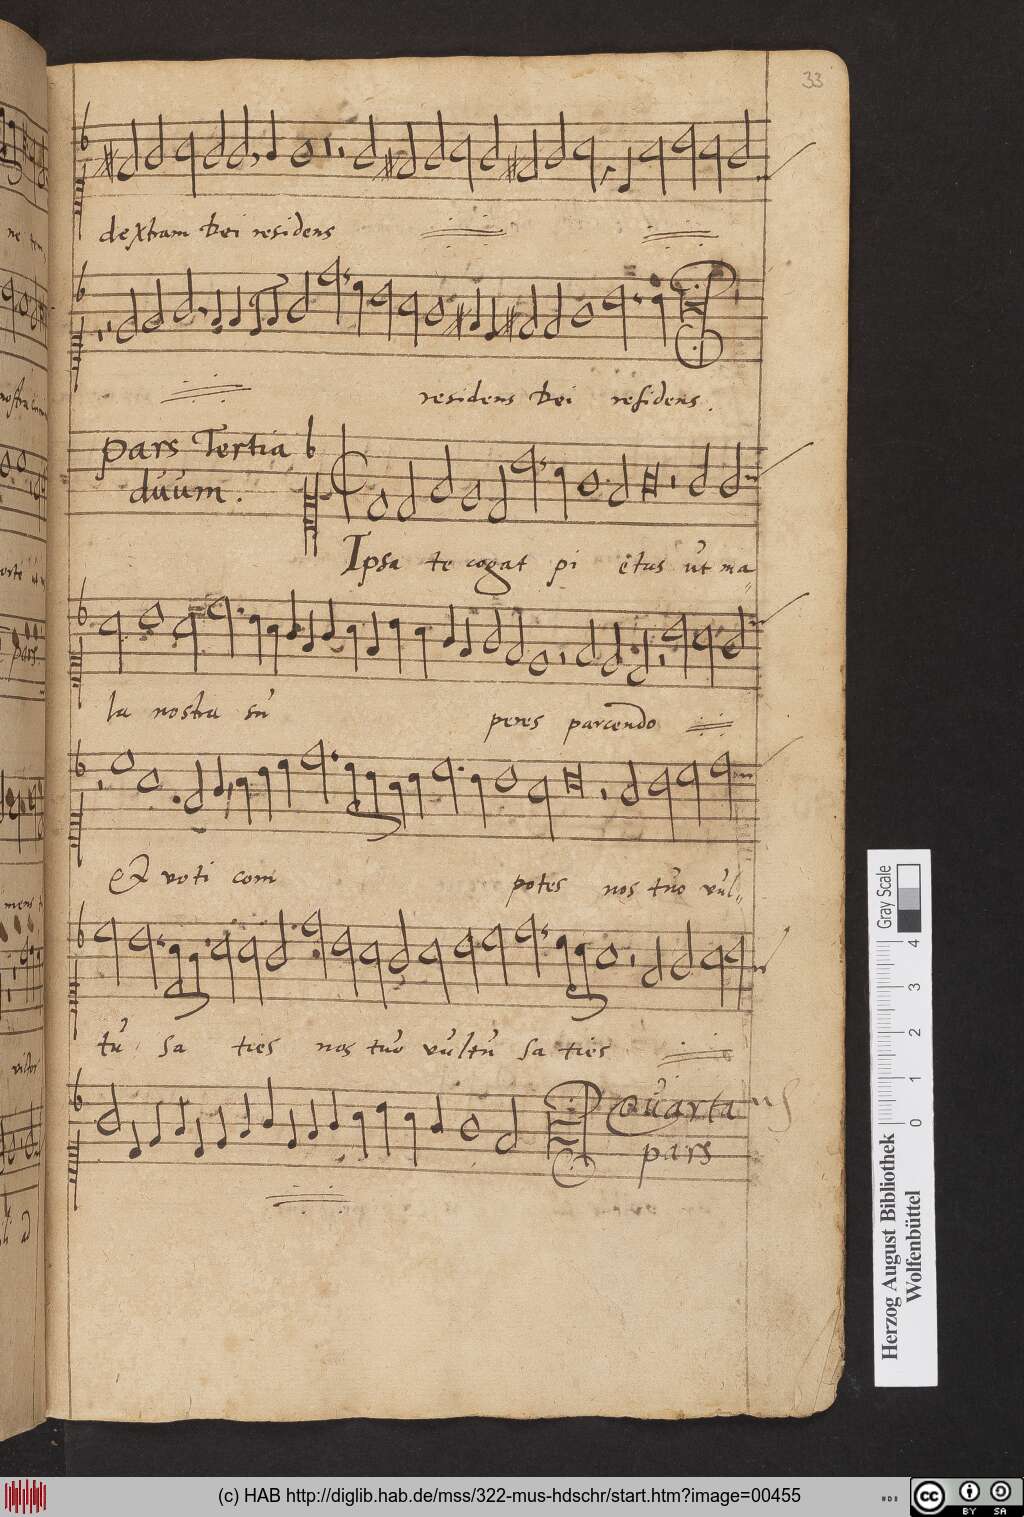 33
dextram Dei residens
residens Dei residens.
Pars Tertia
duum.
Ipsa te cogat pi etas ut ma
la nostra su peres parcendo
Et voti com potes nos tuo vul
tu sa ties nos tuo vultu sa ties
Quarta
pars
Gray Scale
0 1 2 3 4
Herzog August Bibliothek
Wolfenbüttel
(c) HAB http://diglib.hab.de/mss/322-mus-hdschr/start.htm?image=00455
cc BY SA